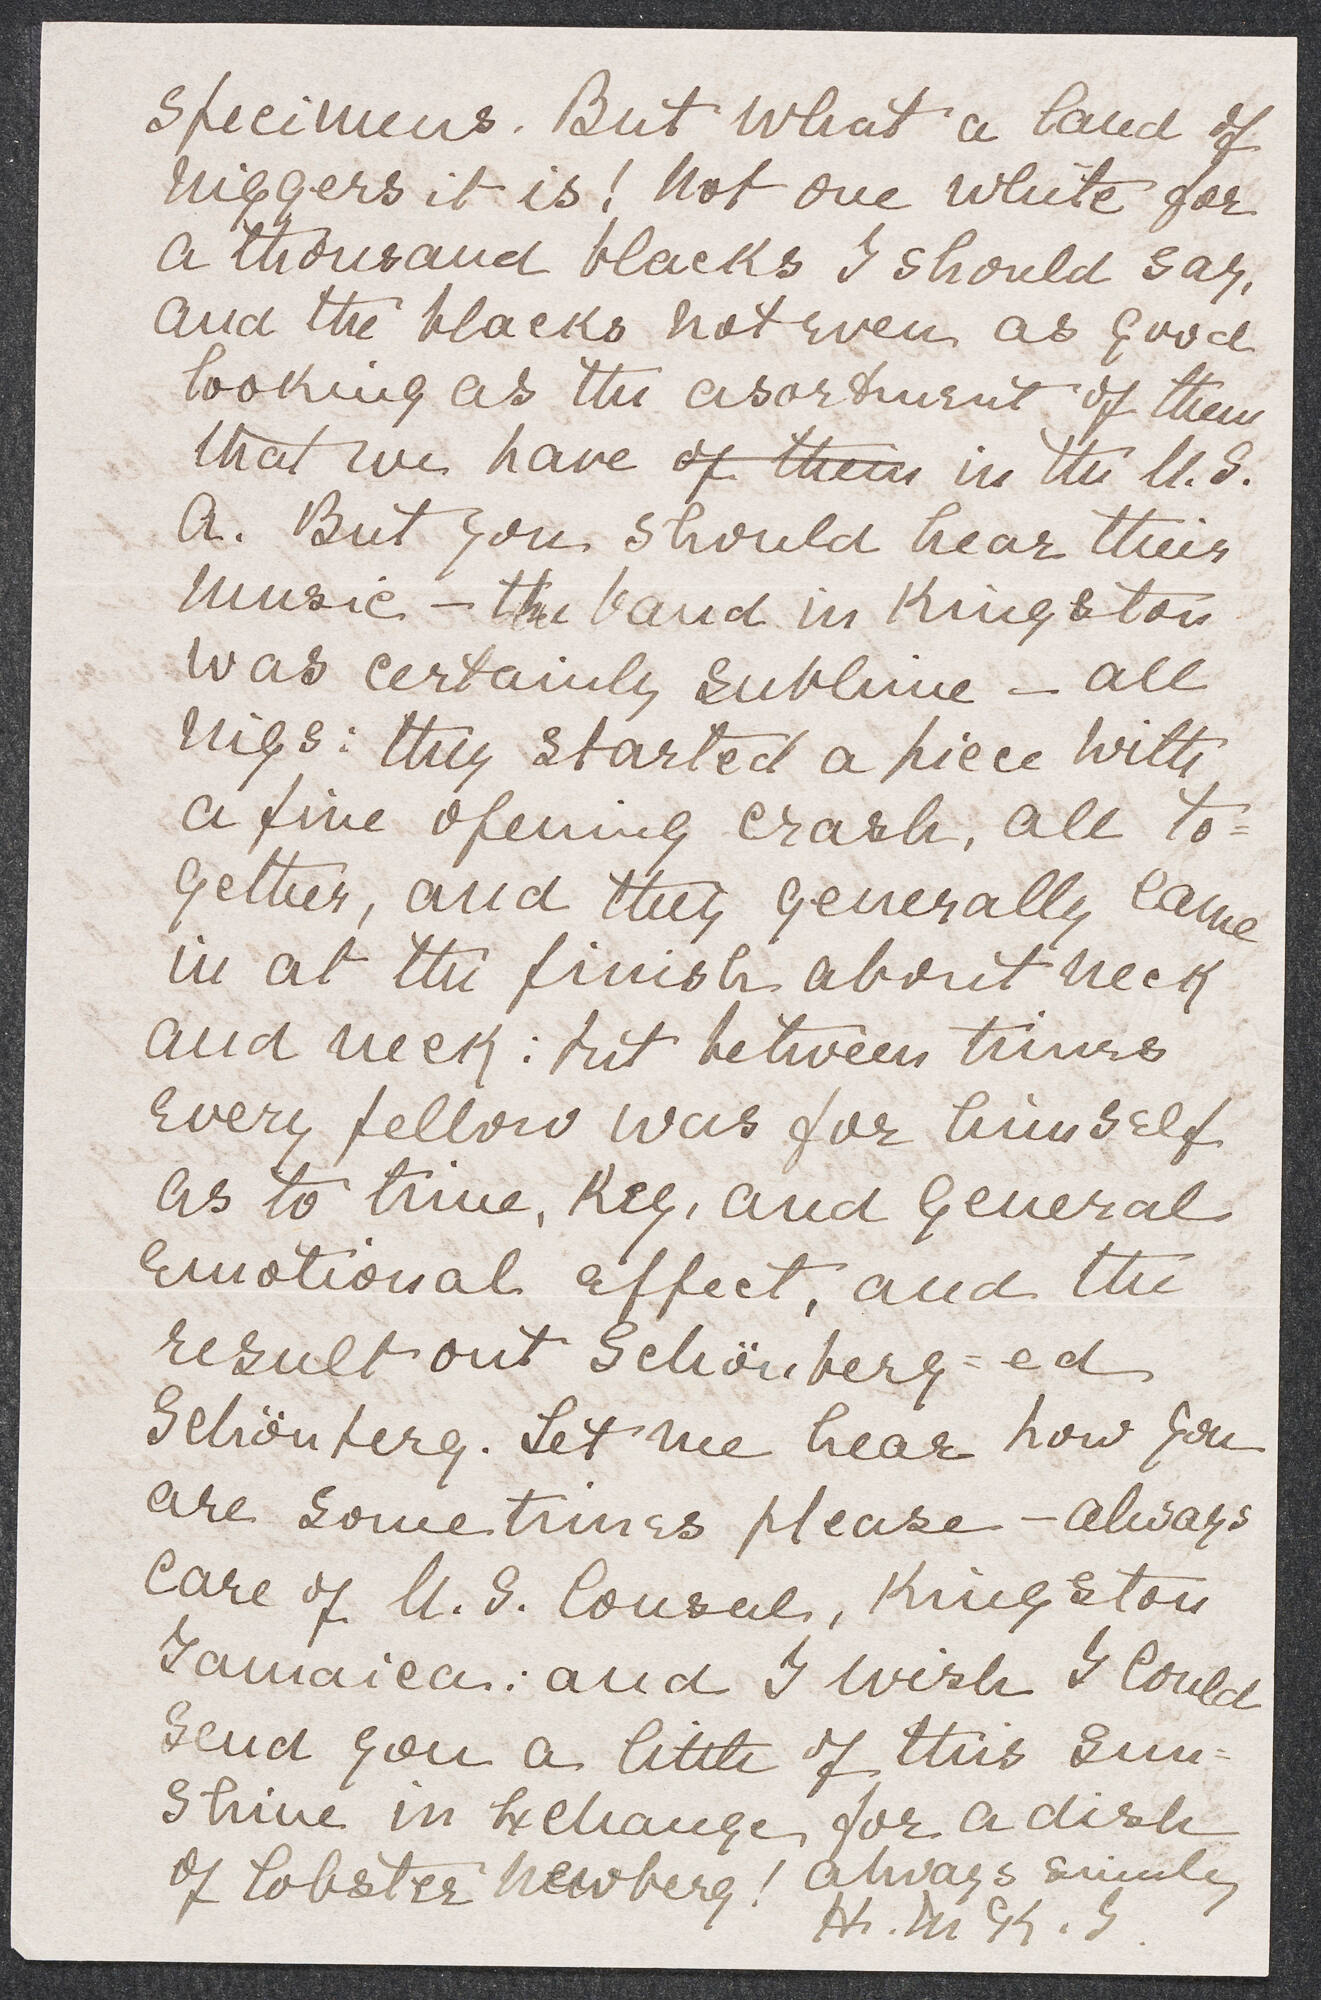 specimens. But what a land of
niggers it is! Not one white for
a thousand blacks I should say,
and the blacks not even as good
looking as the asortment of them
that we have of them in the U.S.
A. But you should hear their
music – the band in Kingston
was certainly sublime – all
nigs: they started a piece with
a fine opening crash, all to=
gether, and they generally came
in at the finish about neck
and neck: but between times
every fellow was for himself
as to time, key, and general
emotional effect, and the
result out Schönberg=ed
Schönberg. Let me hear how you
are sometimes please – always
care of U.S. Consul, Kingston
Jamaica: and I wish I could
send you a little of this sun=
shine in exchange for a dish
of lobster Newberg! always
H. McK.